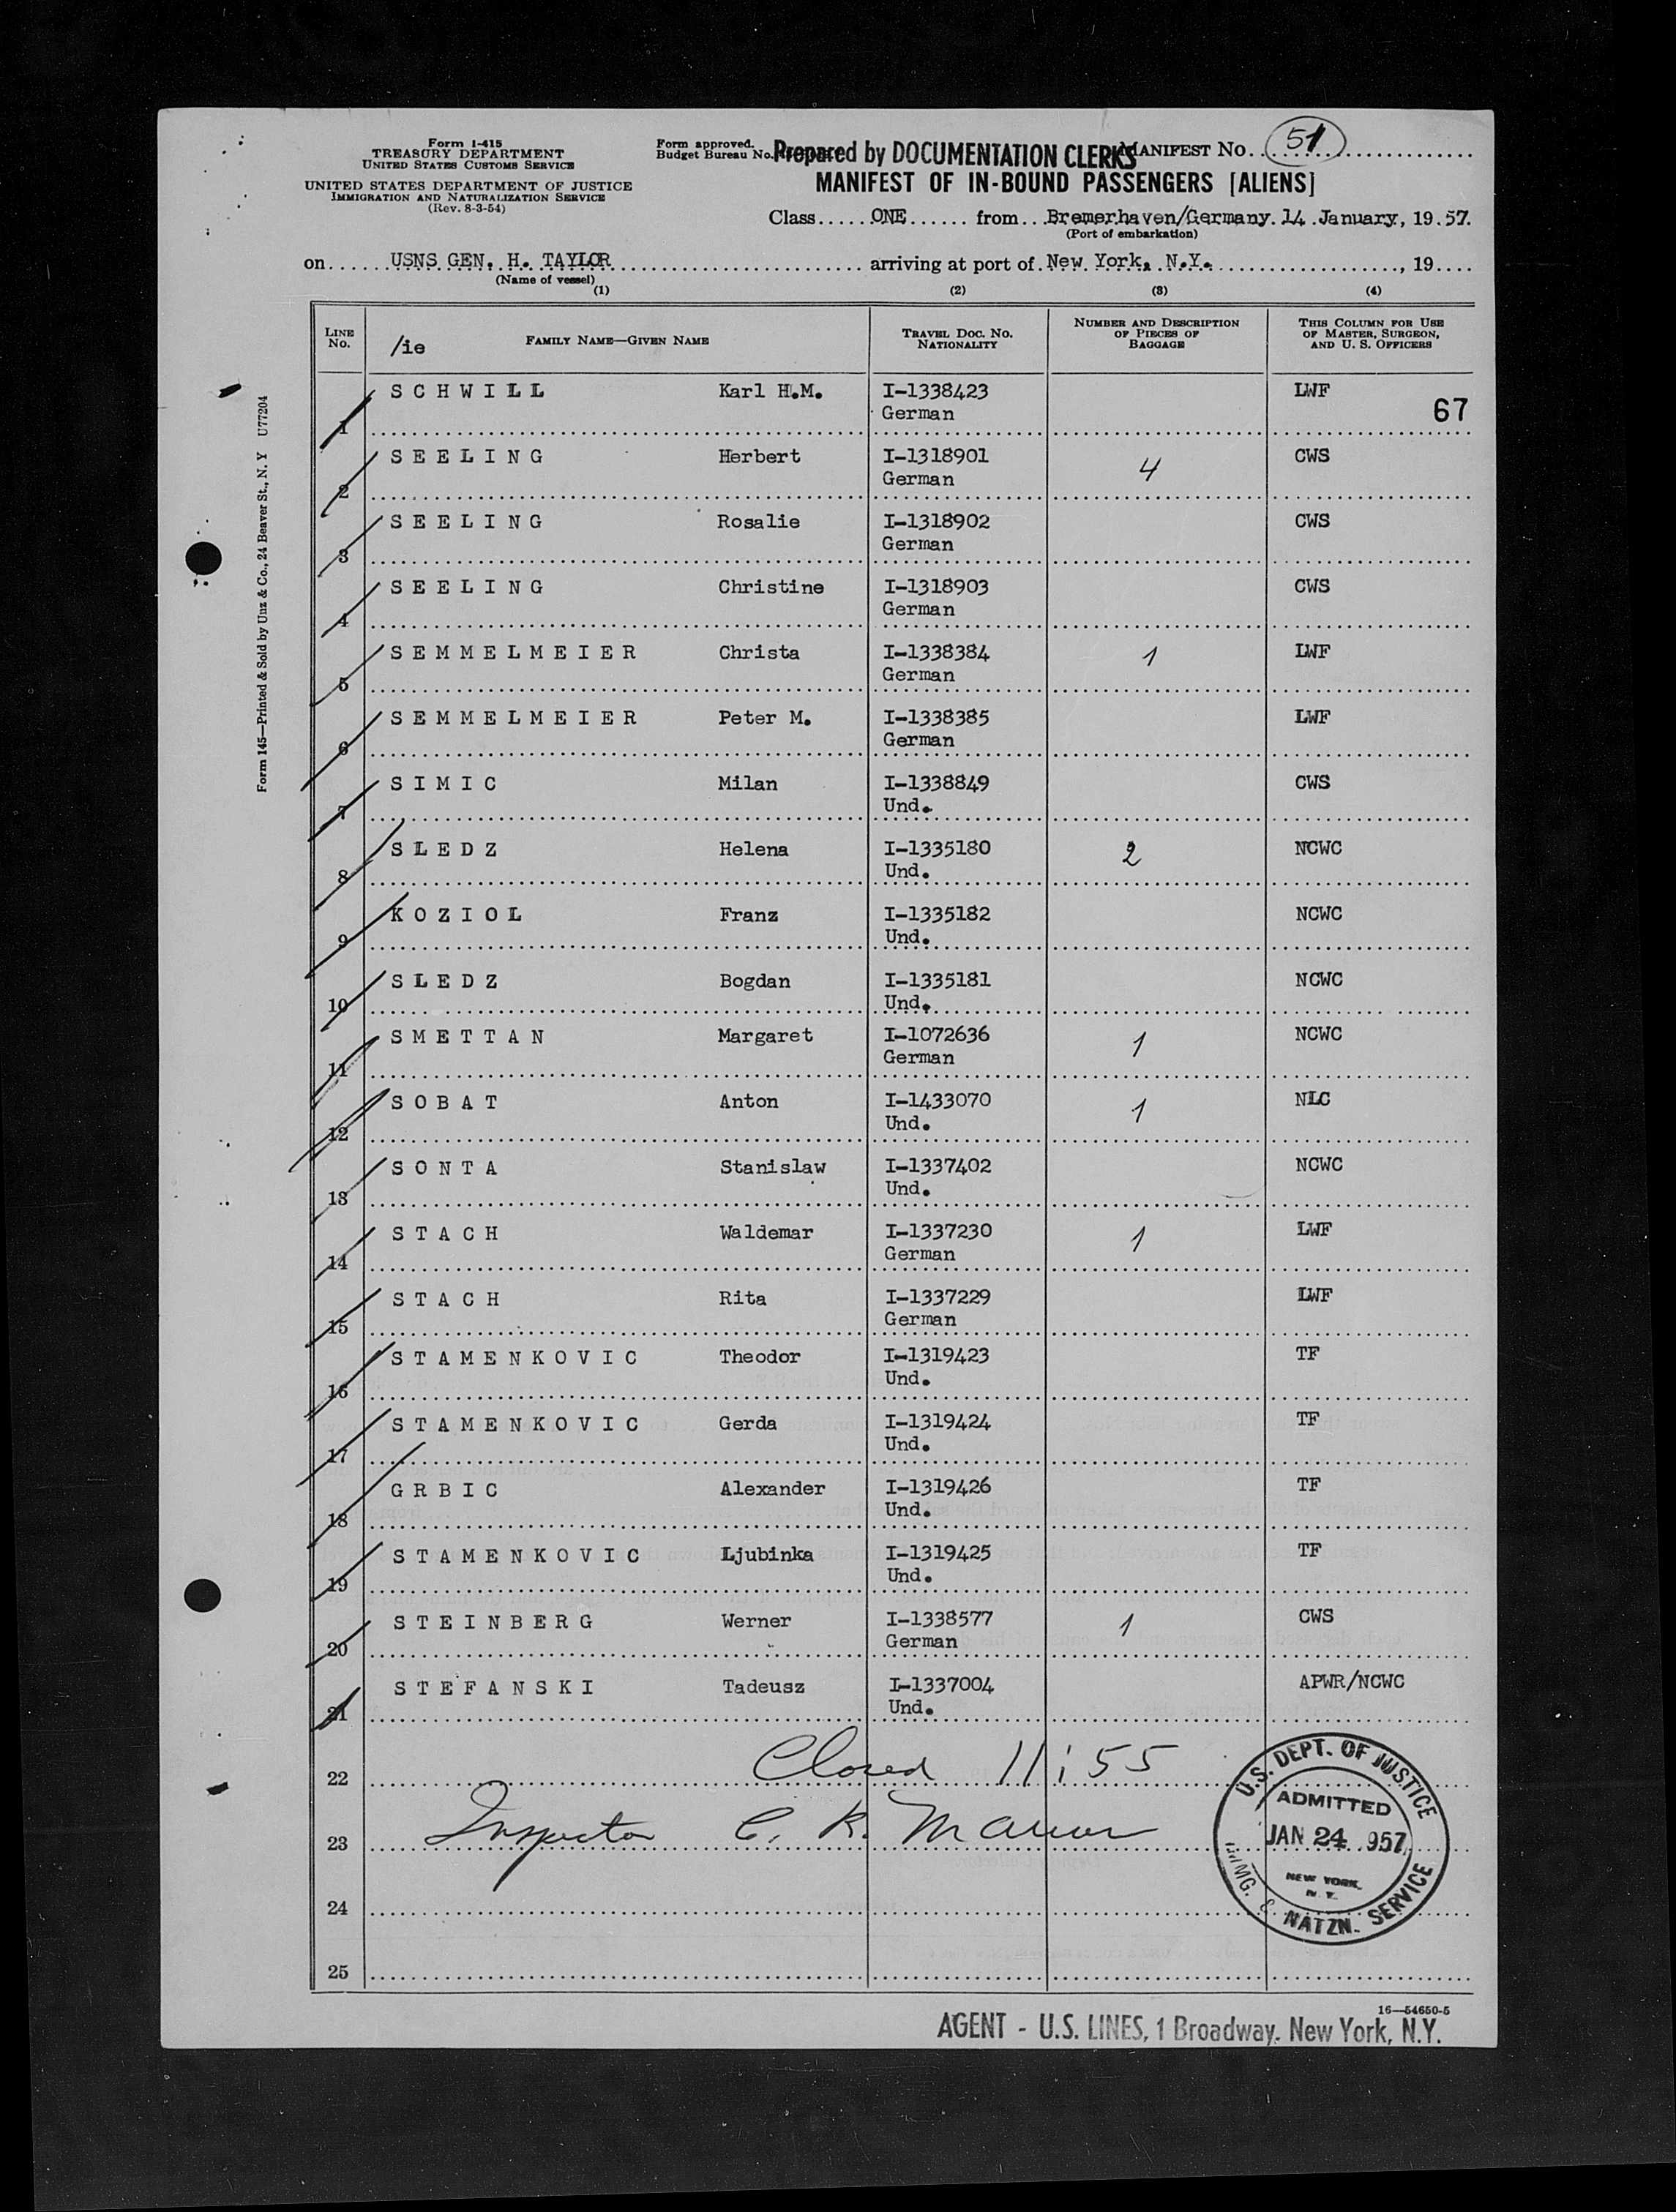 Form I-415
TREASURY DEPARTMENT
UNITED STATES CUSTOMS SERVICE
UNITED STATES DEPARTMENT OF JUSTICE
IMMIGRATION AND NATURALIZATION SERVICE
(Rev. 8-3-54)
Form approved.
Budget Bureau No.
Prepared by DOCUMENTATION CLERKS
MANIFEST No. 51
MANIFEST OF IN-BOUND PASSENGERS [ALIENS]
Class ONE from Bremerhaven/Germany. 14 January, 19 57.
(Port of embarkation)
on USNS GEN. H. TAYLOR arriving at port of New York, N.Y. , 19
(Name of vessel)
(1) (2) (3) (4)
LINE No. /ie FAMILY NAME—GIVEN NAME TRAVEL DOC. NO. NATIONALITY NUMBER AND DESCRIPTION OF PIECES OF BAGGAGE THIS COLUMN FOR USE OF MASTER, SURGEON, AND U. S. OFFICERS
1 SCHWILL Karl H.M. I-1338423 LWF
German 67
2 SEELING Herbert I-1318901 4 CWS
German
3 SEELING Rosalie I-1318902 CWS
German
4 SEELING Christine I-1318903 CWS
German
5 SEMMELMEIER Christa I-1338384 1 LWF
German
6 SEMMELMEIER Peter M. I-1338385 LWF
German
7 SIMIC Milan I-1338849 CWS
Und.
8 SLEDZ Helena I-1335180 2 NCWC
Und.
9 KOZIOL Franz I-1335182 NCWC
Und.
10 SLEDZ Bogdan I-1335181 NCWC
Und.
11 SMETTAN Margaret I-1072636 1 NCWC
German
12 SOBAT Anton I-1433070 1 NLC
Und.
13 SONTA Stanislaw I-1337402 NCWC
Und.
14 STACH Waldemar I-1337230 1 LWF
German
15 STACH Rita I-1337229 LWF
German
16 STAMENKOVIC Theodor I-1319423 TF
Und.
17 STAMENKOVIC Gerda I-1319424 TF
Und.
18 GRBIC Alexander I-1319426 TF
Und.
19 STAMENKOVIC Ljubinka I-1319425 TF
Und.
20 STEINBERG Werner I-1338577 1 CWS
German
21 STEFANSKI Tadeusz I-1337004 APWR/NCWC
Und.
22 Closed 11:55
23 Inspector C. R.
24
25
U.S. DEPT. OF JUSTICE
ADMITTED
JAN 24 957
NEW YORK,
N. Y.
IMMG. & NATZN. SERVICE
16—54650-5
AGENT - U.S. LINES, 1 Broadway. New York, N.Y.
Form 145—Printed & Sold by Unz & Co., 24 Beaver St., N. Y U77204